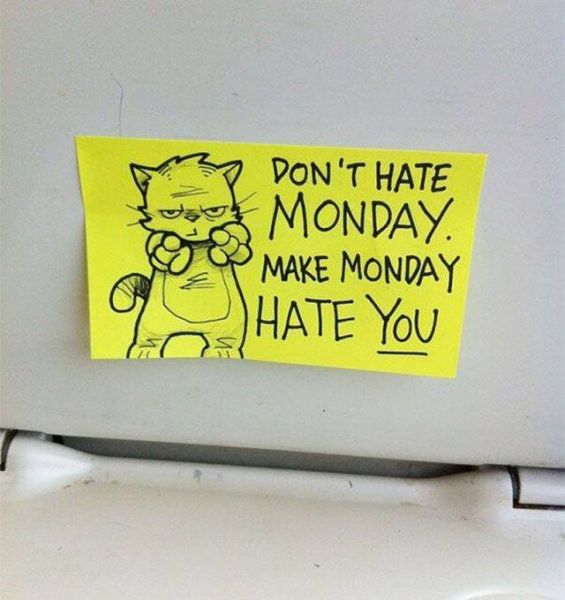 DON'T HATE
MONDAY.
MAKE MONDAY
HATE YOU